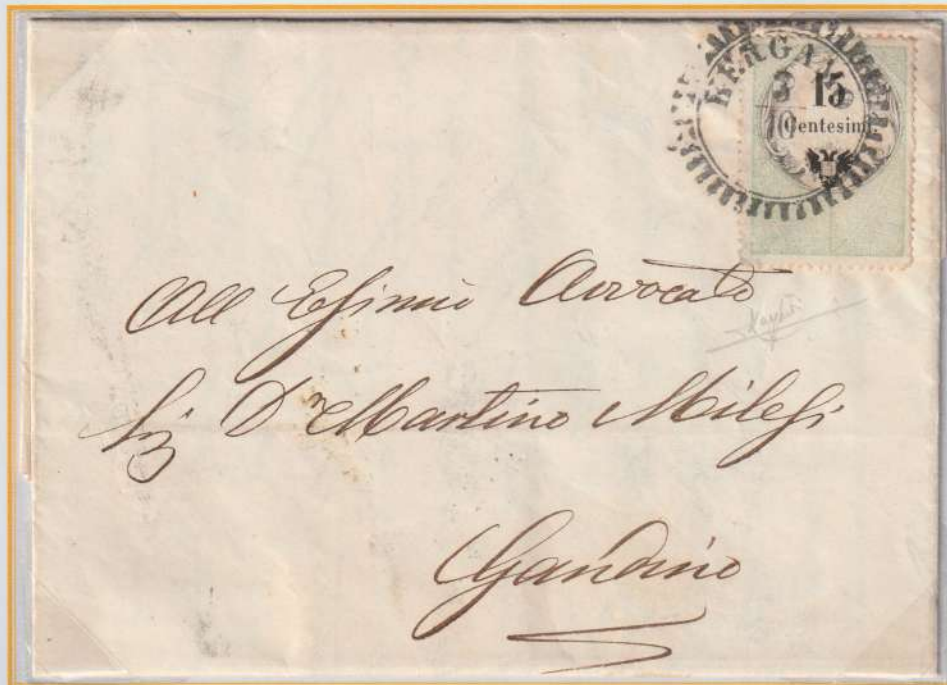 BERGAMO
3
10
15
Centesimi.
All Esimio Avvocato
D.r Martino Milesi
Gandino